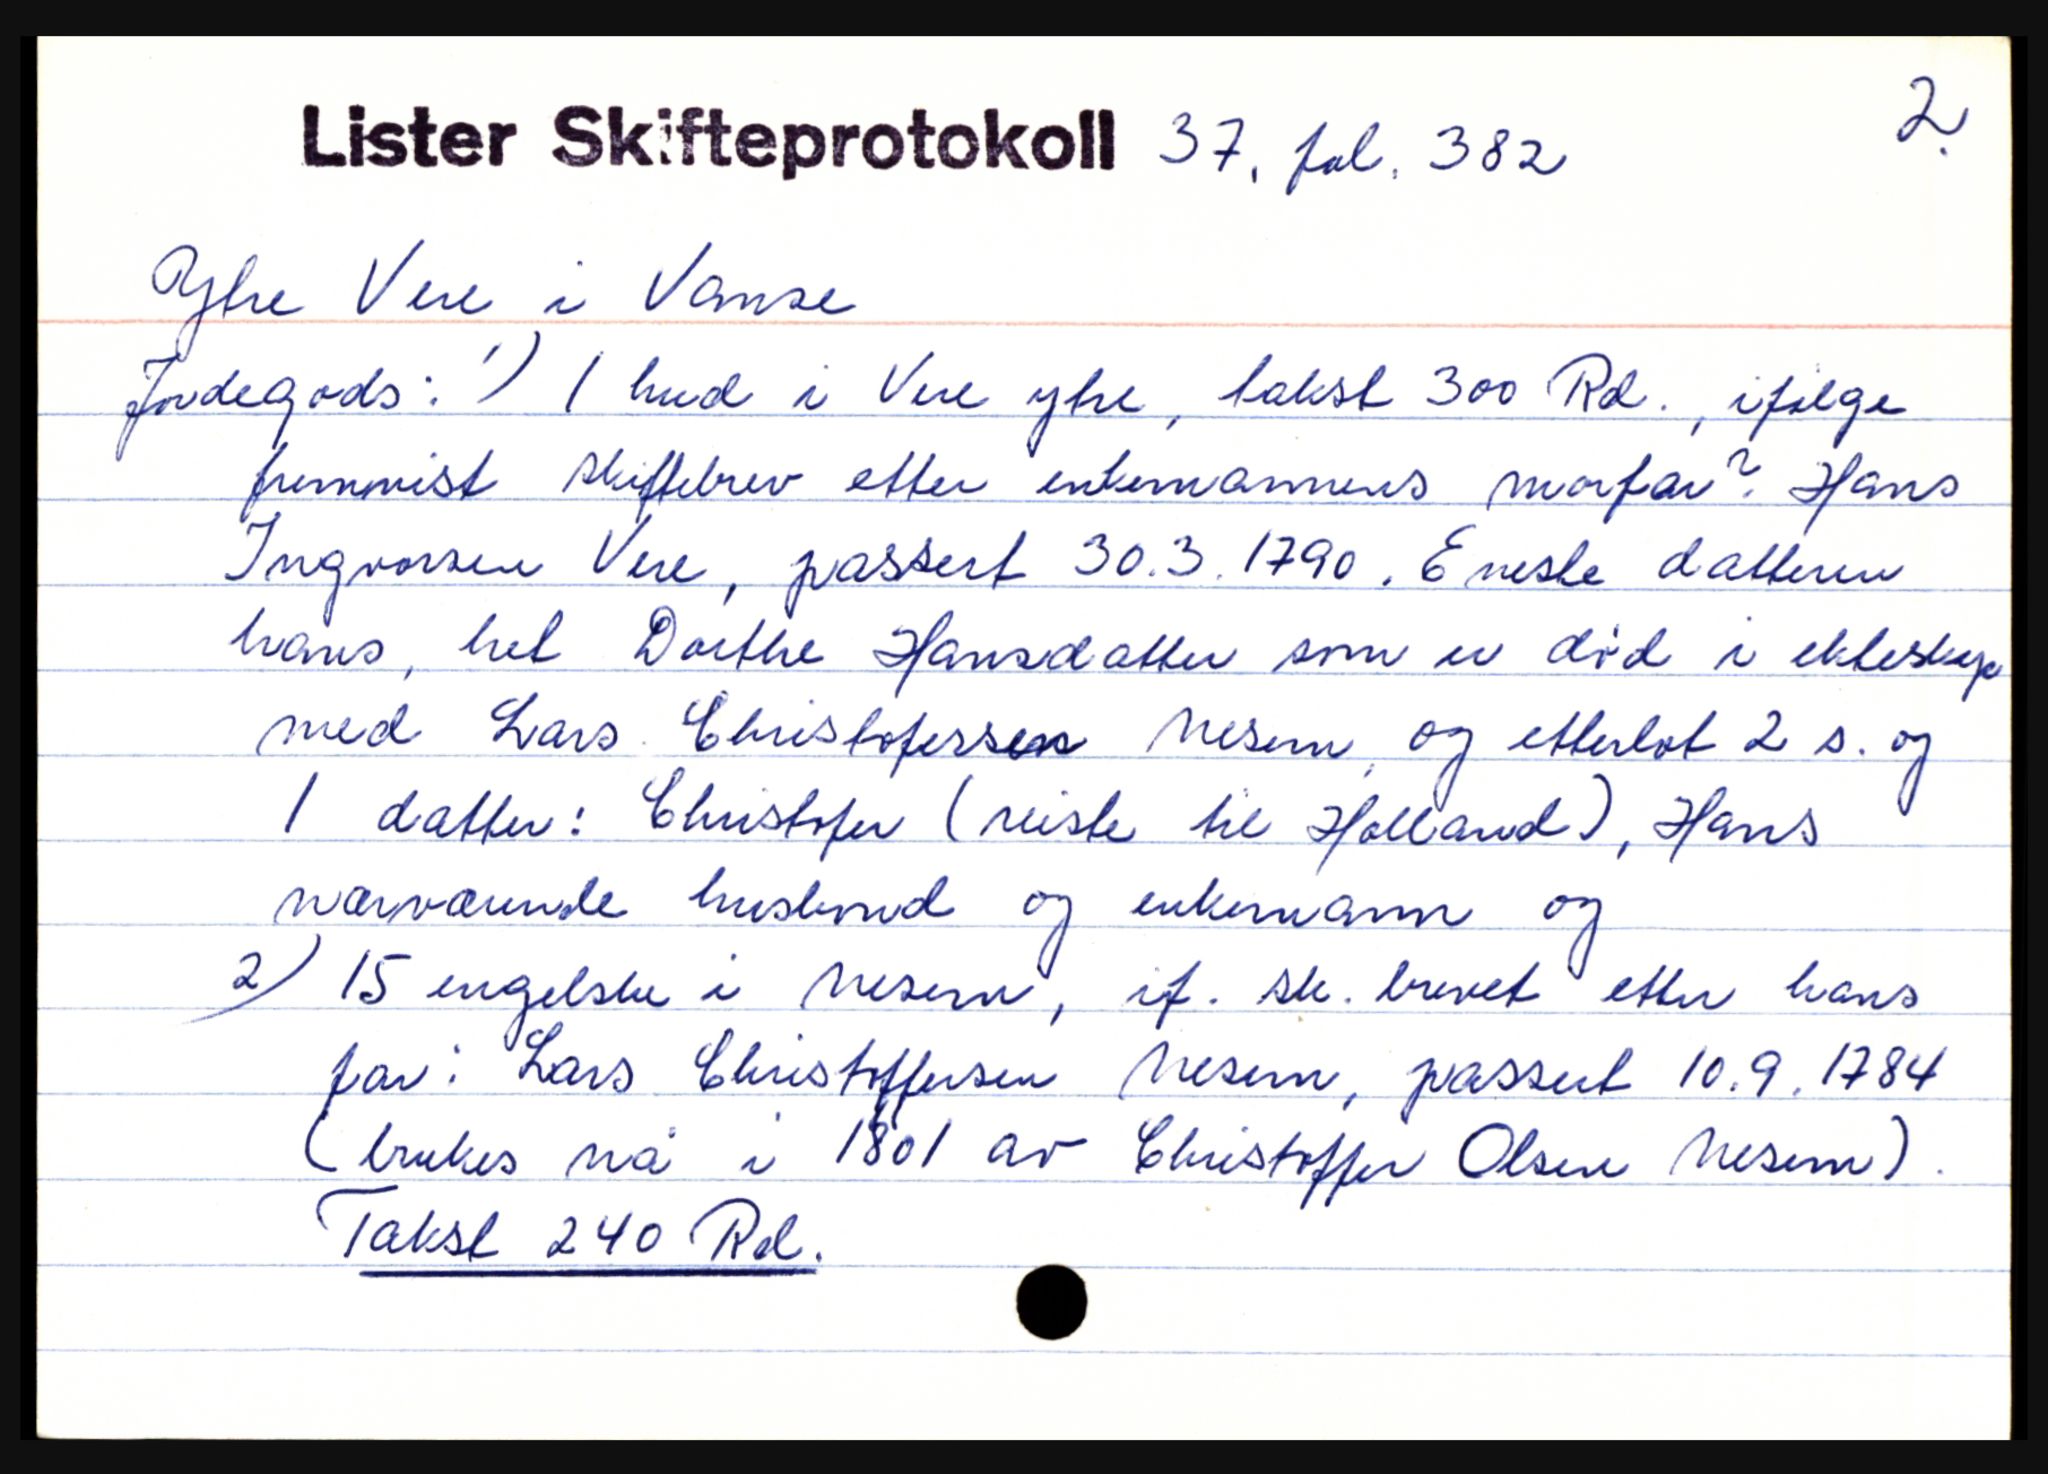 2.
Lister Skifteprotokoll 37, fol. 382
Ytre Vere i Vanse
Jordegods: 1) 1 hud i Vere ytre, takst 300 Rd., ifølge
fremvist skiftebrev etter enkemannens morfar? Hans
Ingvorsen Vere, passert 30.3.1790. Eneste datteren
hans, het Dorthe Hansdatter som er død i ekteskap
med Lars Christofersen Nesem, og etterlot 2 s. og
1 datter: Christofer (reiste til Holland), Hans
nærværende husbond og enkemann og
2) 15 engelske i Nesem, if. sk. brevet etter hans
far: Lars Christoffersen Nesem, passert 10.9.1784
(brukes nå i 1801 av Christoffer Olsen Nesem).
Takst 240 Rd.